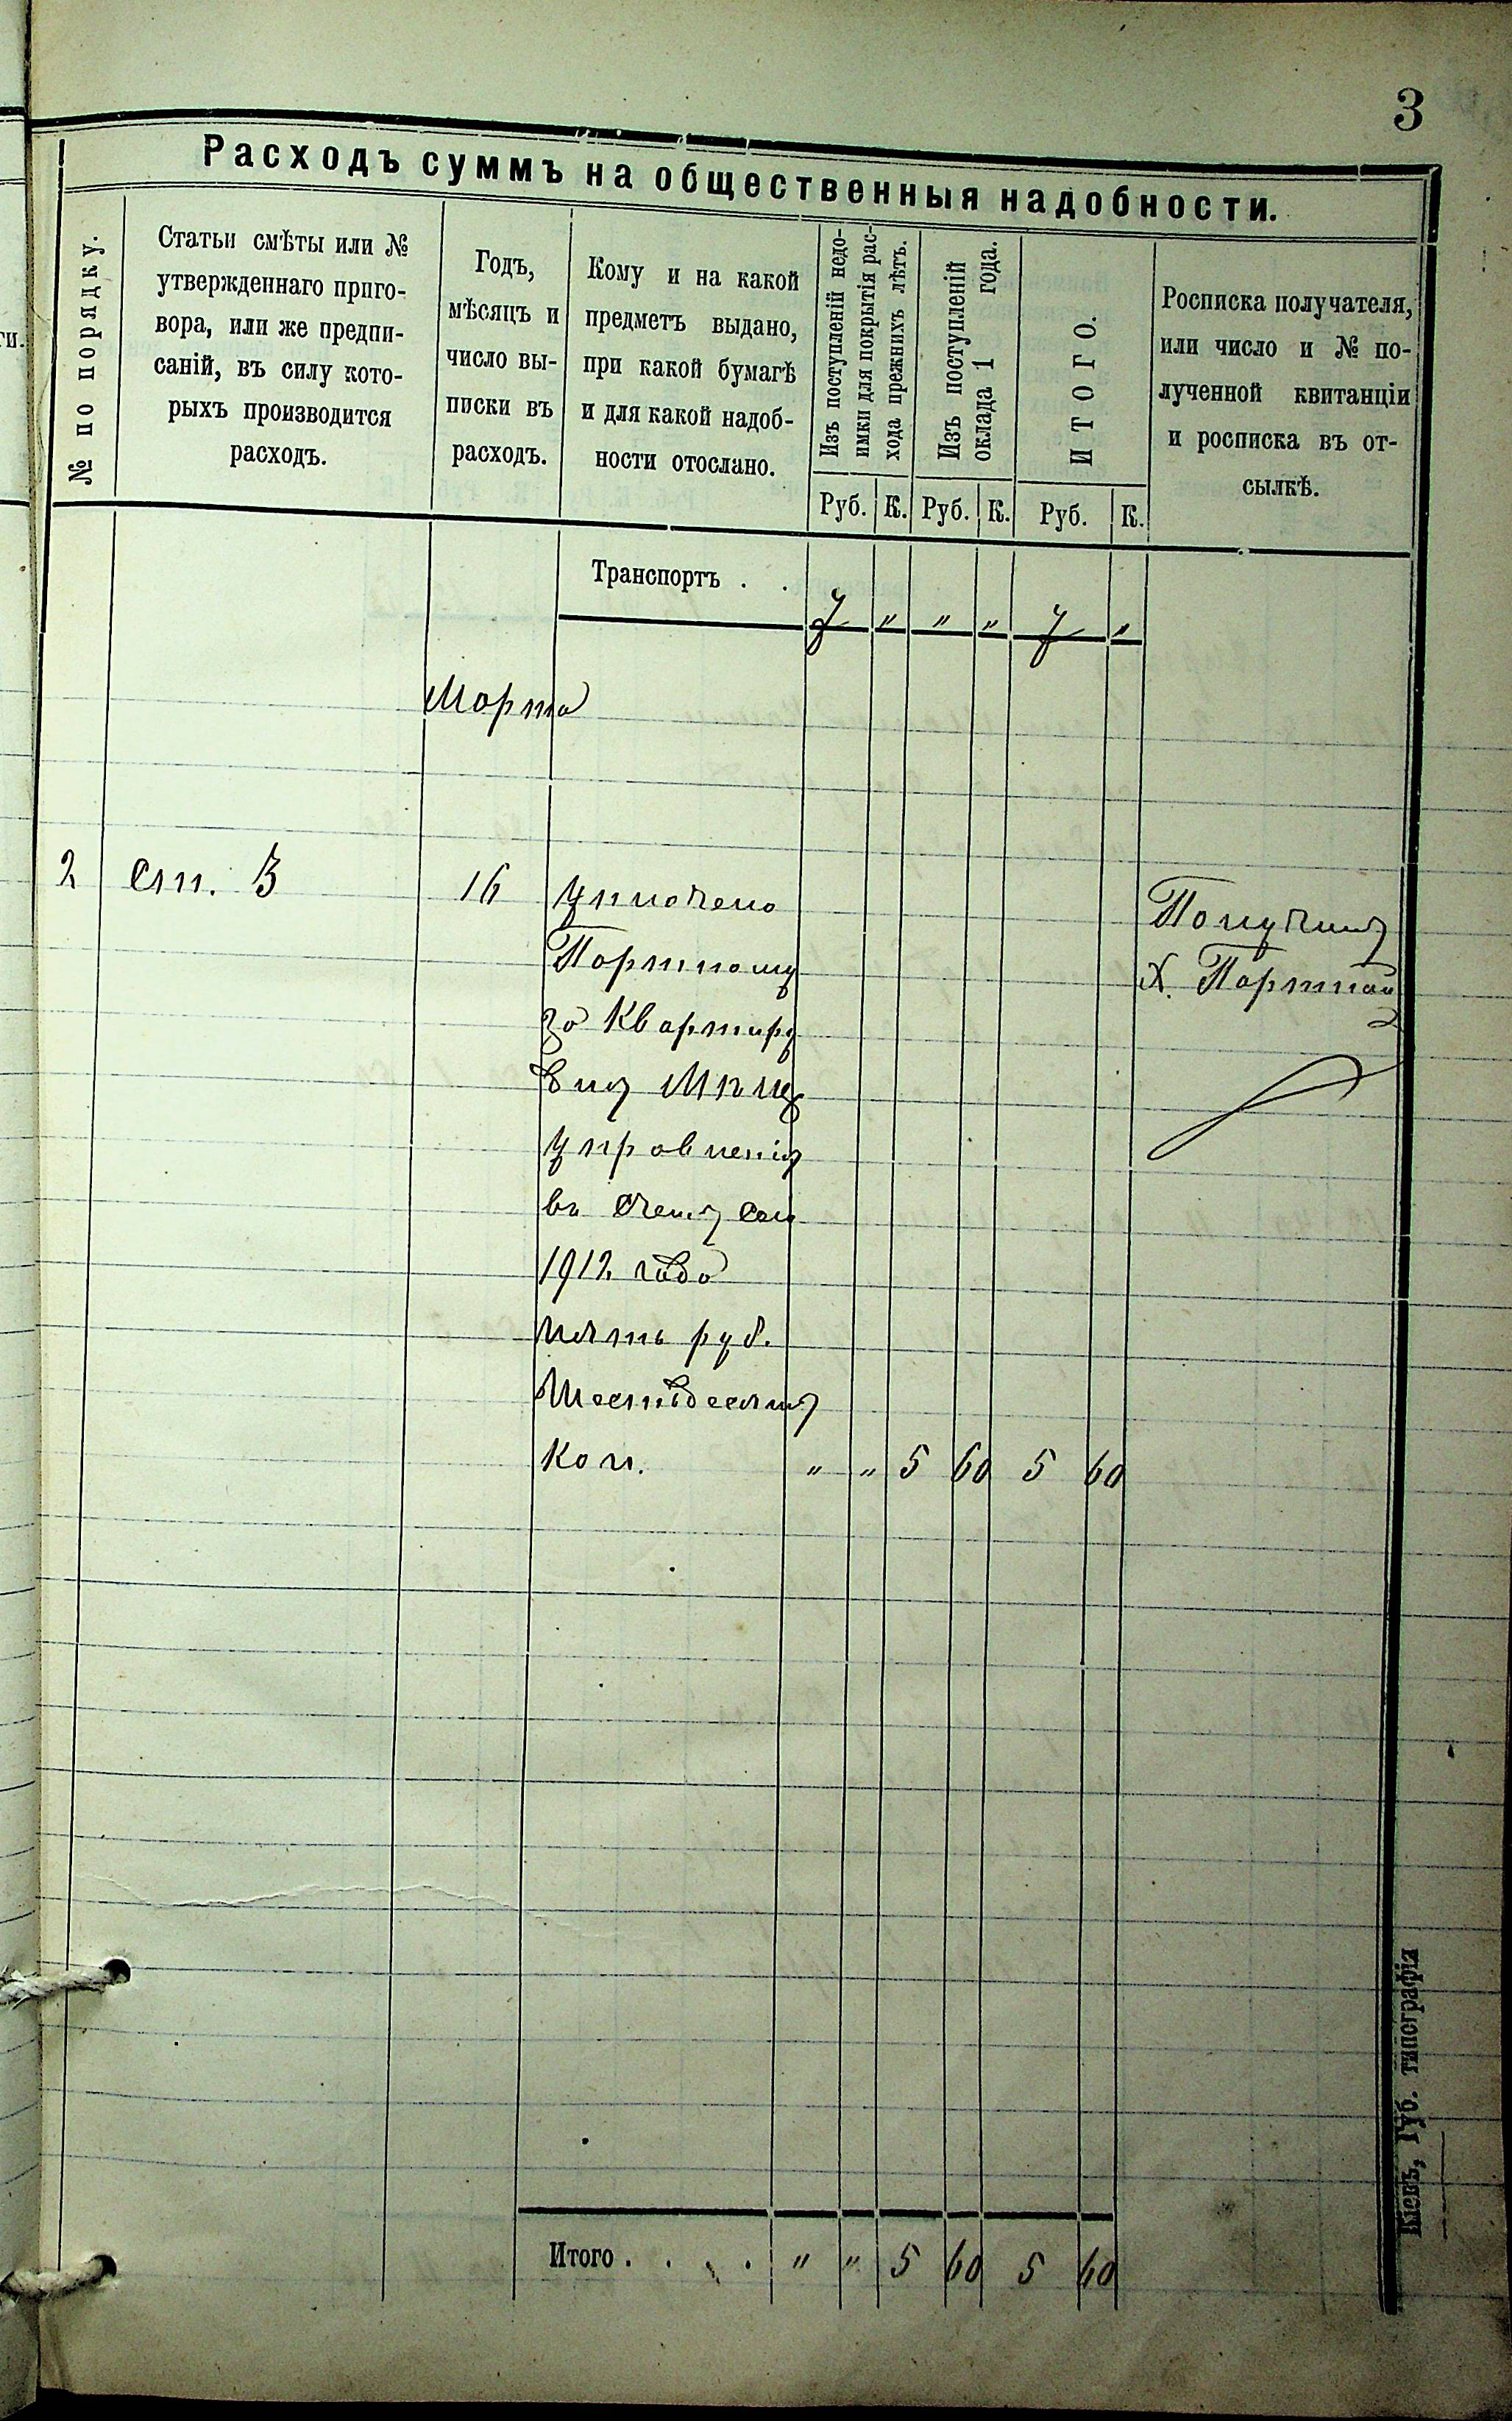 3
Расходъ суммъ на общественныя надобности.
№ по порядку.
Статьи смѣты или №
утвержденнаго приго-
вора, или же предпи-
саній, въ силу кото-
рыхъ производится
расходъ.
Годъ,
мѣсяцъ и
число вы-
писки въ
расходъ.
Кому и на какой
предметъ выдано,
при какой бумагѣ
и для какой надоб-
ности отослано.
Изъ поступленій недо-
имки для покрытія рас-
хода прежнихъ лѣтъ.
Изъ поступленій
оклада 1 года.
ИТОГО.
Росписка получателя,
или число и № по-
лученной квитанціи
и росписка въ от-
сылкѣ.
Руб. К. Руб. К. Руб. К.
Транспортъ . . 7 " " " 7 "
Марта
2 ст. 3 16 Уплочено Получилъ
Портному Х. Портной
за квартиру
для Мѣщ
управленія
въ счетъ см
1912 года
пять руб.
шестьдесятъ
коп. " " 5 60 5 60
Итого . . . . " " 5 60 5 60
Кіевъ, Губ. типографія